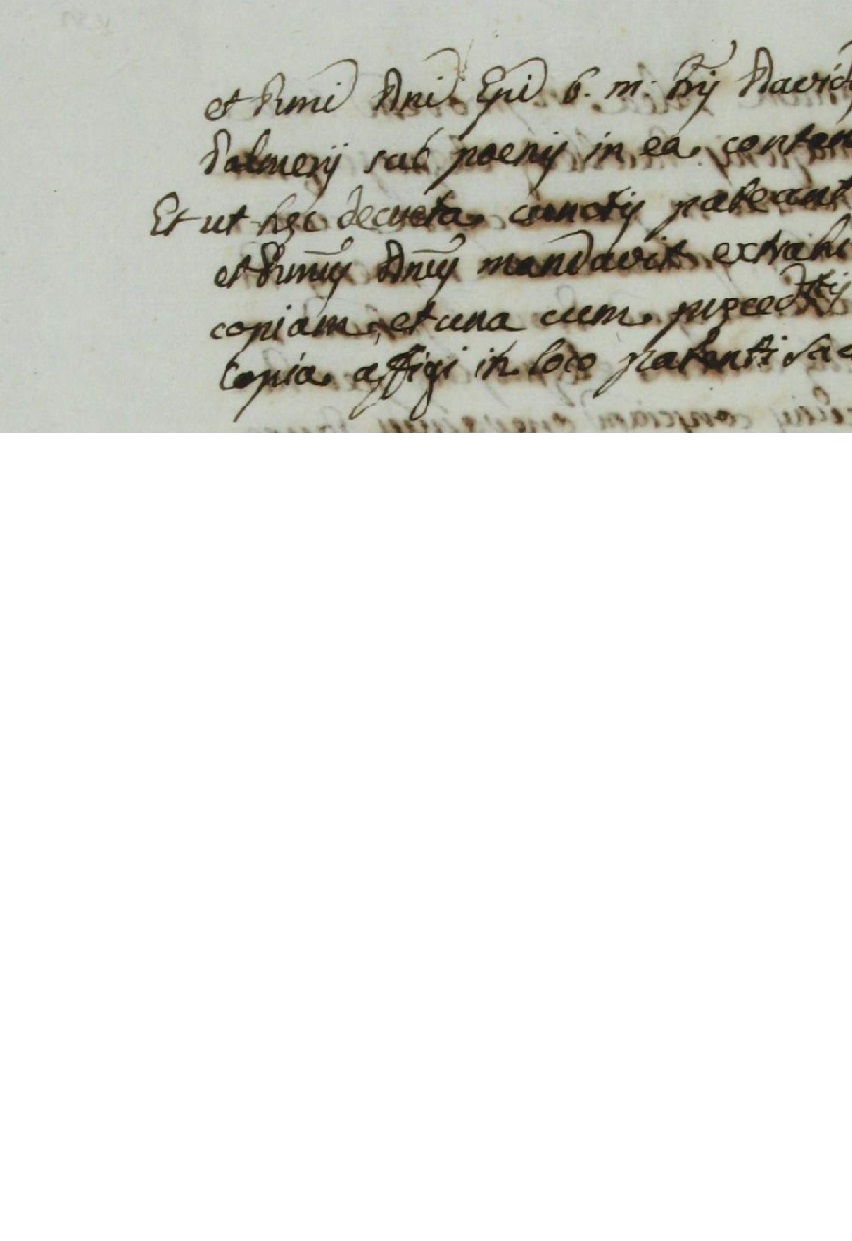 et Rmi Dni Epi b. m. David
Palmerij sub poenis in ea conten
Et ut hęc decreta cunctis pateant
et Rmus Dnus mandavit extrahi
copiam, et una cum pręced
Copia affigi in loco patenti Sac